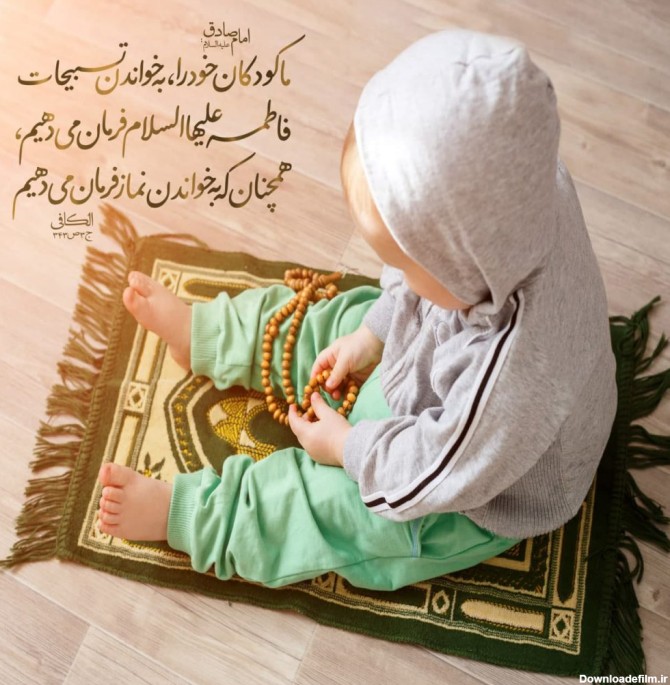 امام صادق
علیه‌السلام:
ما کودکان خود را، به خواندن تسبیحات
فاطمه علیها السلام فرمان می‌دهیم،
همچنان که به خواندن نماز فرمان می‌دهیم
الکافی
ج۳ص۳۴۳
Downloadefilm.ir